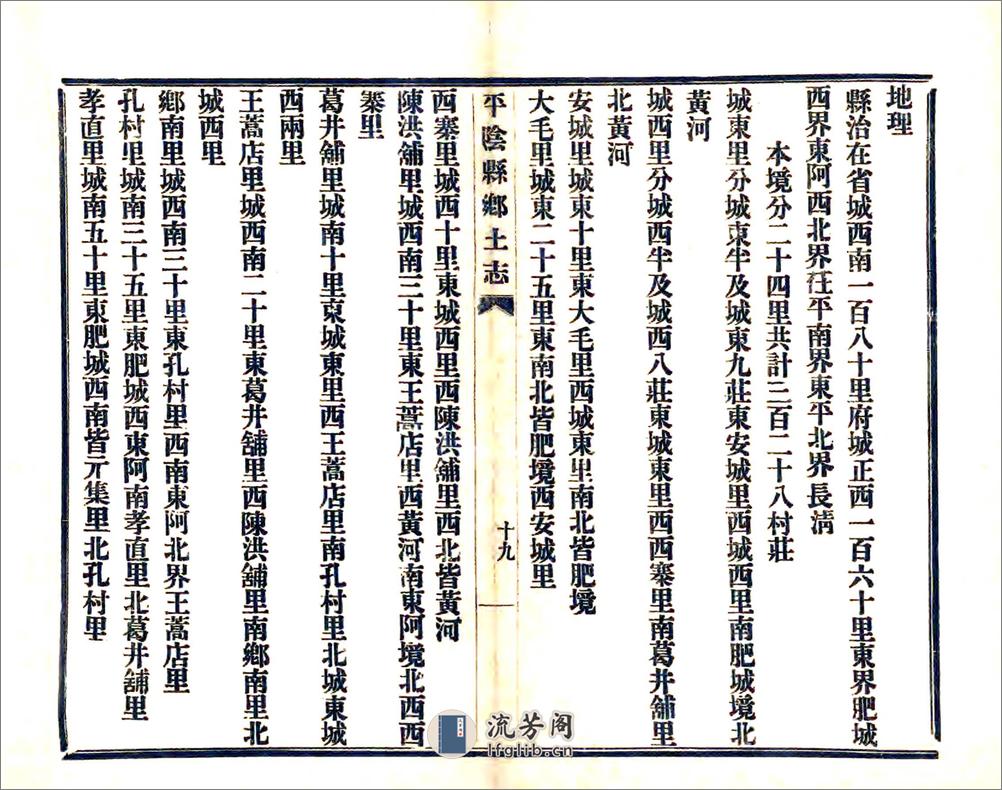 地理
縣治在省城西南一百八十里府城正西一百六十里東界肥城
西界東阿西北界茌平南界東平北界長淸
本境分二十四里共計三百二十八村莊
城東里分城東半及城東九莊東安城里西城西里南肥城境北
黃河
城西里分城西半及城西八莊東城東里西西寨里南葛井舖里
北黃河
安城里城東十里東大毛里西城東里南北皆肥境
大毛里城東二十五里東南北皆肥境西安城里
平陰縣鄉土志
十九
西寨里城西十里東城西里西陳洪舖里西北皆黃河
陳洪舖里城西南三十里東王蒿店里西黃河南東阿境北西西
寨里
葛井舖里城南十里東城東里西王蒿店里南孔村里北城東城
西兩里
王蒿店里城西南二十里東葛井舖里西陳洪舖里南鄉南里北
城西里
鄉南里城西南三十里東孔村里西南東阿北界王蒿店里
孔村里城南三十五里東肥城西東阿南孝直里北葛井舖里
孝直里城南五十里東肥城西南皆亓集里北孔村里
流芳阁
lfglib.cn